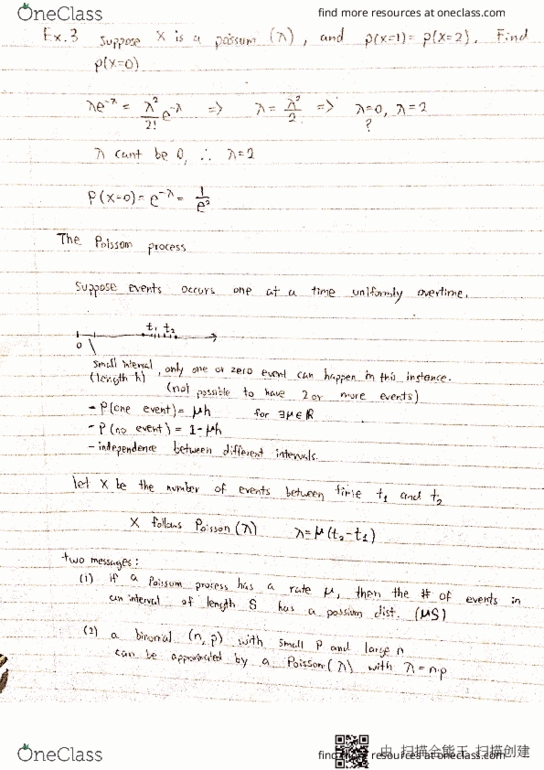 OneClass
find more resources at oneclass.com
Ex.3 Suppose X is a poissum (λ), and p(x=1)= p(x=2). Find
p(x=0)
λe^-λ = λ²/2! e^-λ => λ = λ²/2 => λ=0, λ=2
?
λ cant be 0, ∴ λ=2
P(x=0)= e^-λ = 1/e²
The Poissom process
Suppose events occurs one at a time uniformly overtime.
t₁ t₂
0
small interval, only one or zero event can happen in this instance.
(length h) (not possible to have 2 or more events)
- P(one event)= μh for ∃μ∈ℝ
- P(no event) = 1-μh
- independence between different intervals.
let X be the number of events between time t₁ and t₂
X follows Poisson(λ) λ=μ(t₂-t₁)
two messages:
(1) if a Poissum process has a rate μ, then the # of events in
an interval of length S has a possium dist. (μS)
(2) a binomial (n, p) with small p and large n
can be apporoxiated by a Poisson(λ) with λ=n·p
OneClass
find more resources at oneclass.com
由 扫描全能王 扫描创建